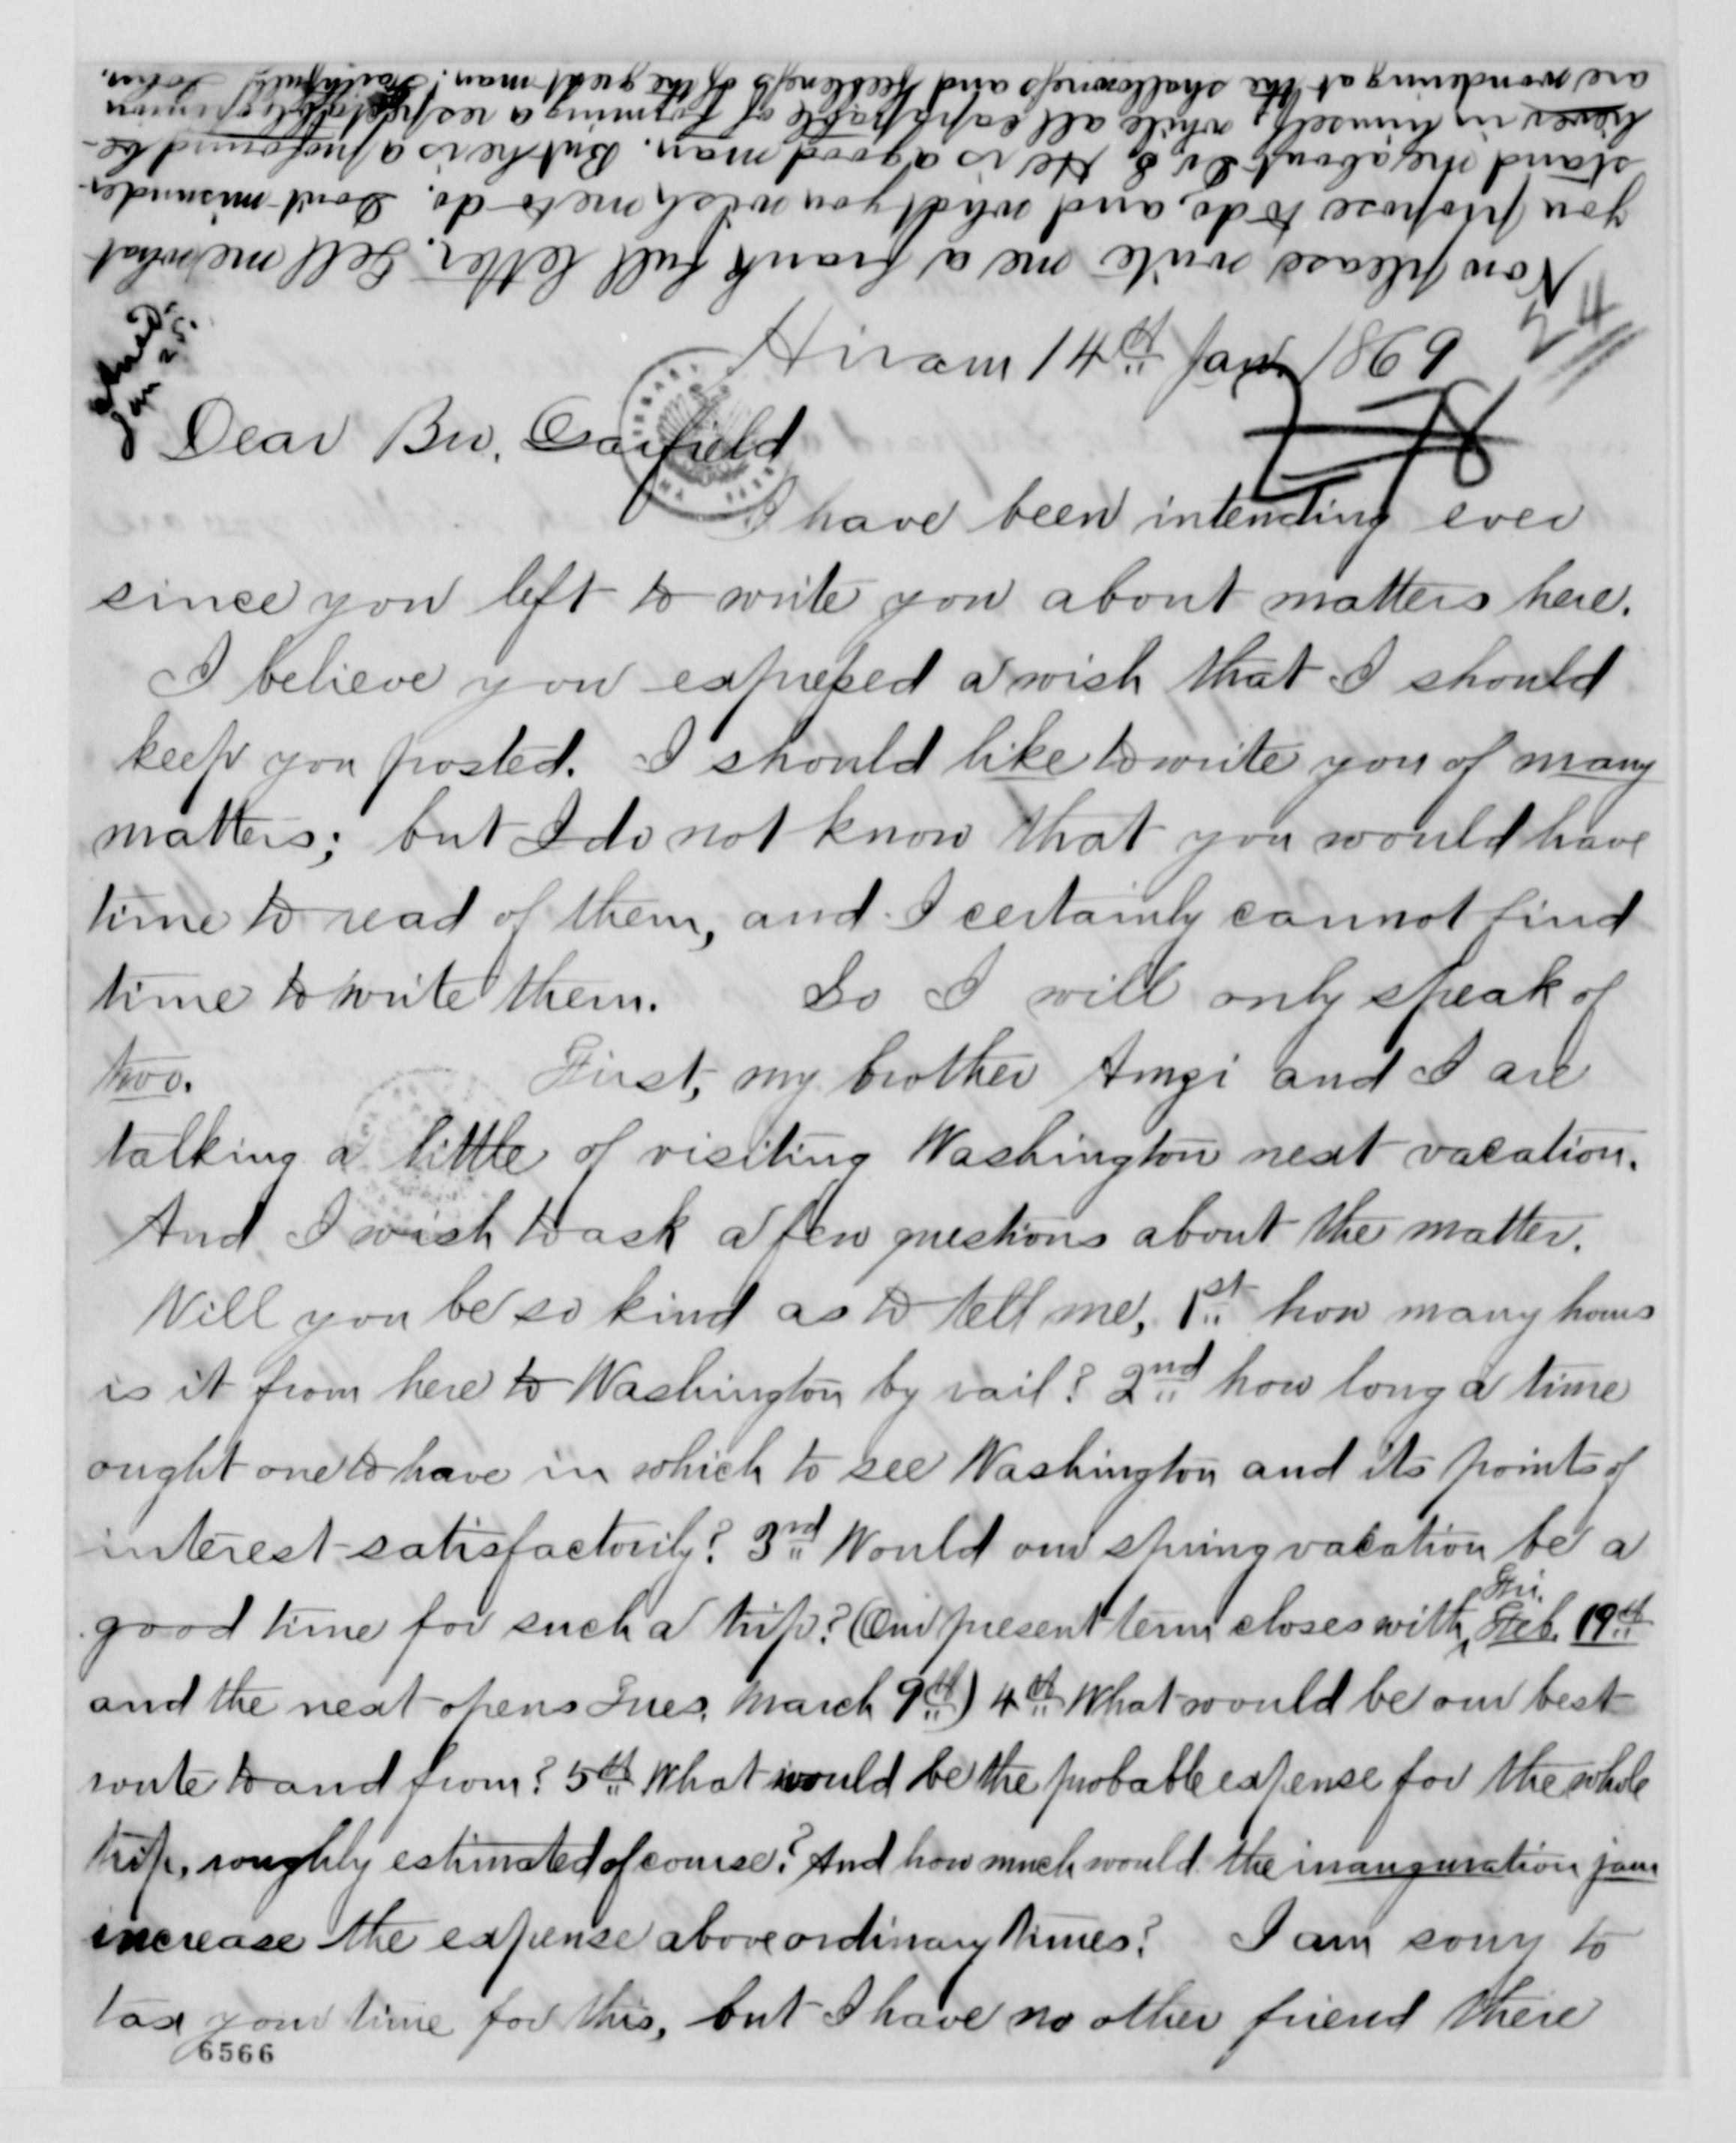 Now please write me a frank full letter. Tell me what
you propose to do, and what you wish me to do. Dont misunder-
stand me about Dr. S. He is a good man. But he is a profound be-
liever in himself, while all capable of forming a respectable opinion
are wondering at the shallowness and feebleness of the great man! Faithfully John.
Jan 25.
Hiram 14th Jan. 1869
Dear Bro. Garfield
I have been intending ever
since you left to write you about matters here.
I believe you expressed a wish that I should
keep you posted. I should like to write you of many
matters; but I do not know that you would have
time to read of them, and I certainly cannot find
time to write them. So I will only speak of
two. First, my brother Amzi and I are
talking a little of visiting Washington next vacation.
And I wish to ask a few questions about the matter.
Will you be so kind as to tell me, 1st how many hours
is it from here to Washington by rail? 2nd how long a time
ought one to have in which to see Washington and its points of
interest satisfactorily? 3rd Would our spring vacation be a
good time for such a trip? (Our present term closes with Fri. Feb. 19th
and the next opens Tues. March 9th) 4th What would be our best
route to and from? 5th What would be the probable expense for the whole
trip, roughly estimated of course? And how much would the inauguration jam
increase the expense above ordinary times? I am sorry to
tax your time for this, but I have no other friend there
6566